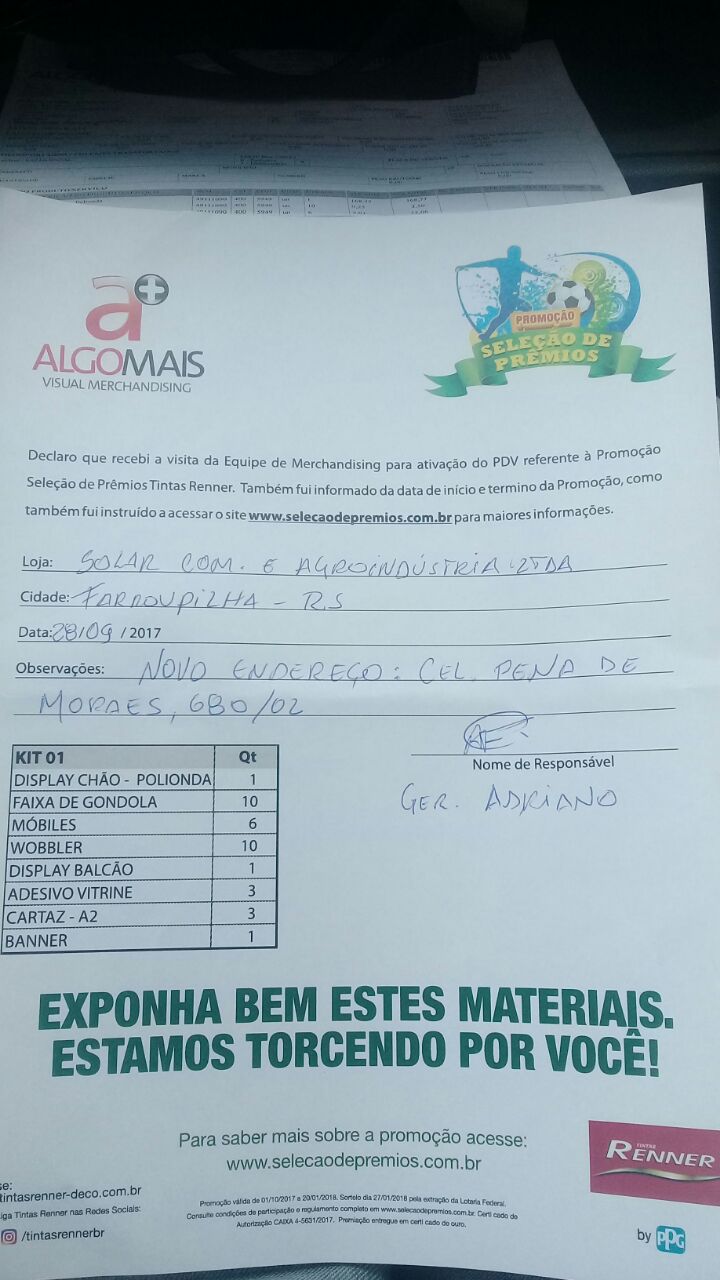 a+
ALGOMAIS
VISUAL MERCHANDISING
PROMOÇÃO
SELEÇÃO DE
PRÊMIOS
Declaro que recebi a visita da Equipe de Merchandising para ativação do PDV referente à Promoção
Seleção de Prêmios Tintas Renner. Também fui informado da data de início e termino da Promoção, como
também fui instruído a acessar o site www.selecaodepremios.com.br para maiores informações.
Loja: SOLAR COM. E AGROINDÚSTRIA LTDA
Cidade: FARROUPILHA - RS
Data: 28/09 / 2017
Observações: NOVO ENDEREÇO: CEL. PENA DE
MORAES, 680/02
Nome de Responsável
GER. ADRIANO
KIT 01 Qt
DISPLAY CHÃO - POLIONDA 1
FAIXA DE GONDOLA 10
MÓBILES 6
WOBBLER 10
DISPLAY BALCÃO 1
ADESIVO VITRINE 3
CARTAZ - A2 3
BANNER 1
EXPONHA BEM ESTES MATERIAIS.
ESTAMOS TORCENDO POR VOCÊ!
Para saber mais sobre a promoção acesse:
www.selecaodepremios.com.br
TINTAS
RENNER
se:
tintasrenner-deco.com.br
iga Tintas Renner nas Redes Sociais:
/tintasrennerbr
Promoção válida de 01/10/2017 a 20/01/2018. Sorteio dia 27/01/2018 pela extração da Loteria Federal.
Consulte condições de participação e regulamento completo em www.selecaodepremios.com.br. Certi cado de
Autorização CAIXA 4-5631/2017. Premiação entregue em certi cado de ouro.
by PPG